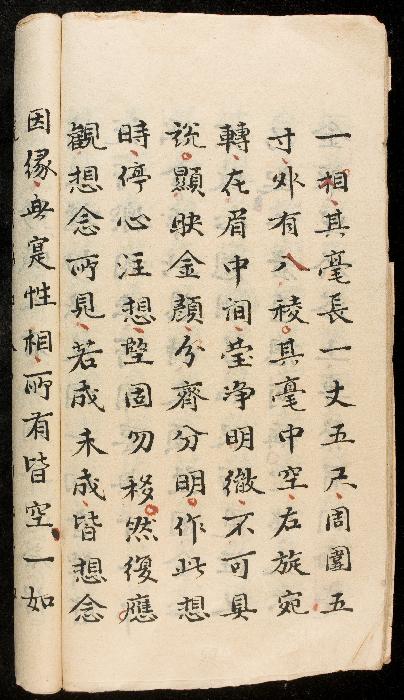 一相其毫長一丈五尺周圍五
寸外有八稜其毫中空右旋宛
轉在眉中間瑩淨明徹不可具
說顯映金顏分齊分明作此想
時停心注想堅固勿移然復應
觀想念所見若成未成皆想念
因緣無寔性相所有皆空一如